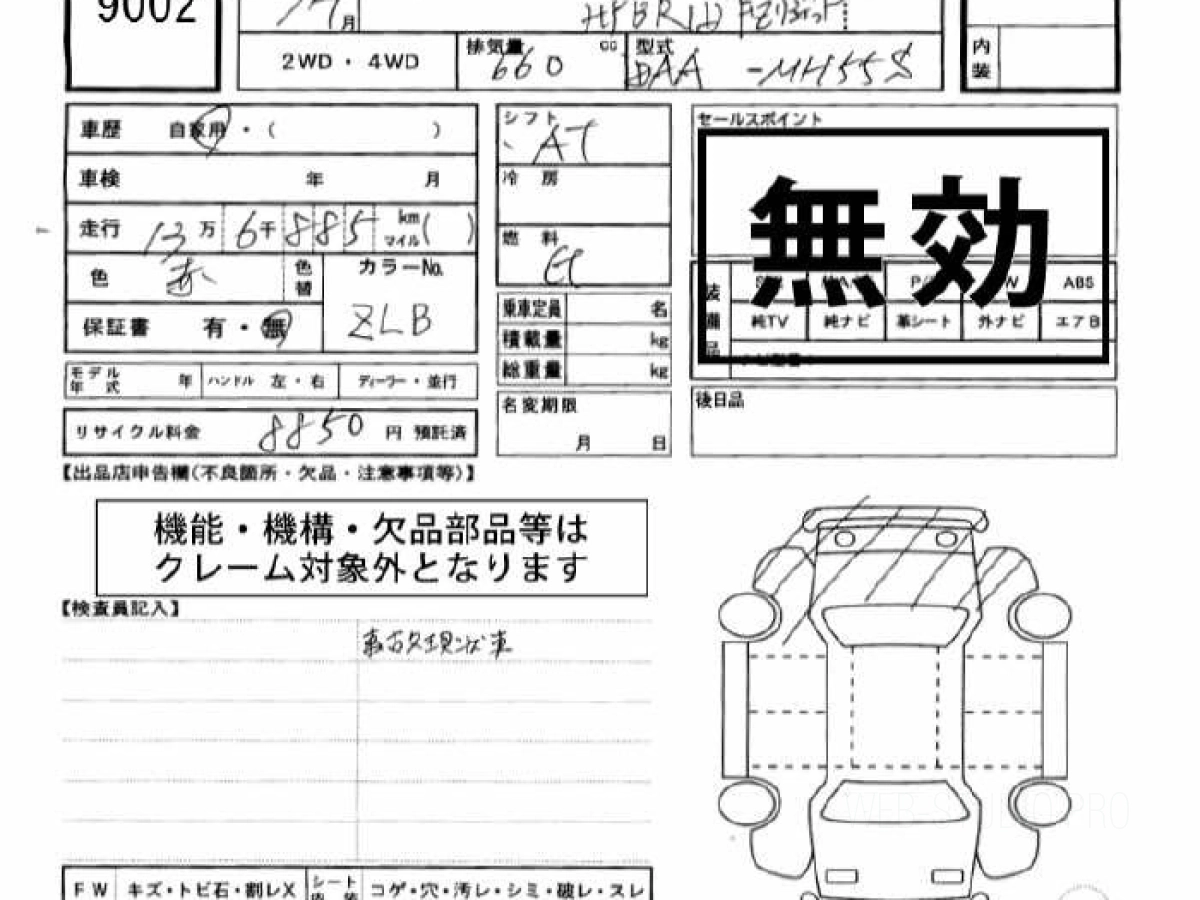 9002
月
2WD・4WD
排気量 660 cc
型式 DAA-MH55S
内装
車歴 自家用・( )
車検 年 月
走行 13万 6千 885 km マイル( )
色 赤 色替
カラーNo. ZLB
保証書 有・無
モデル年式 年 ハンドル 左・右 ディーラー・並行
リサイクル料金 8850 円 預託済
シフト AT
冷房
燃料
乗車定員 名
積載量 kg
総重量 kg
名変期限
月 日
セールスポイント
無効
装備品 ABS
純TV 純ナビ 革シート 外ナビ エアB
後日品
【出品店申告欄(不良箇所・欠品・注意事項等)】
機能・機構・欠品部品等は
クレーム対象外となります
【検査員記入】
事故現状車
FW キズ・トビ石・割レX シート コゲ・穴・汚レ・シミ・破レ・スレ
WEB-STUDIO.PRO